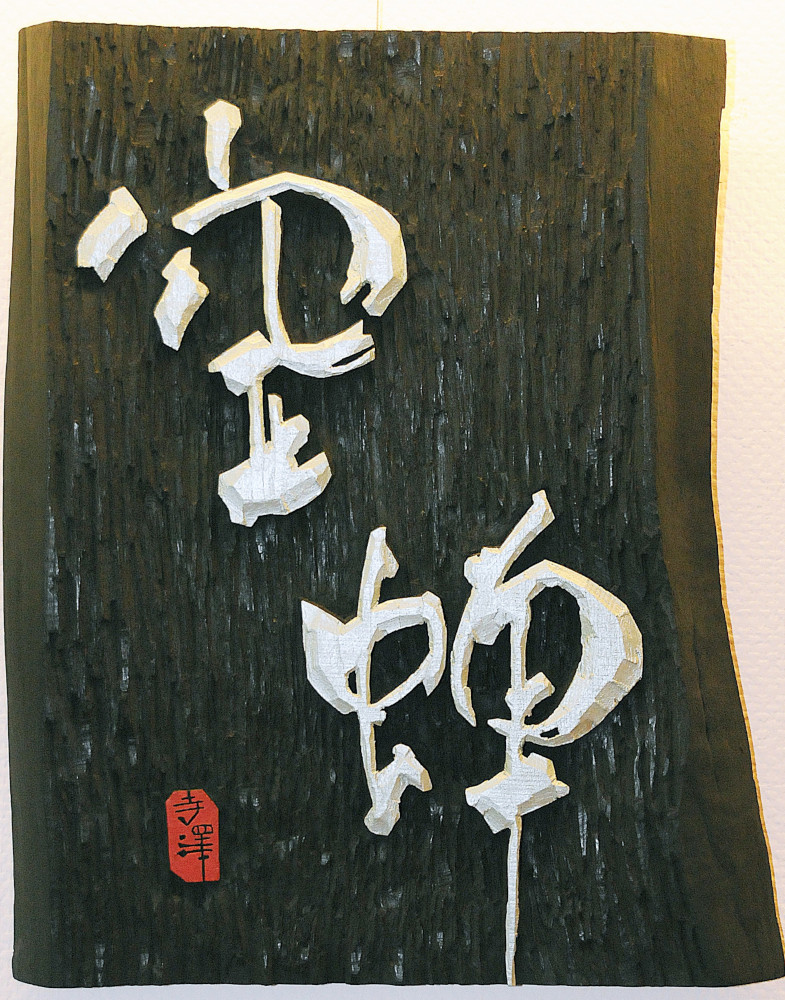 空蝉
寺澤